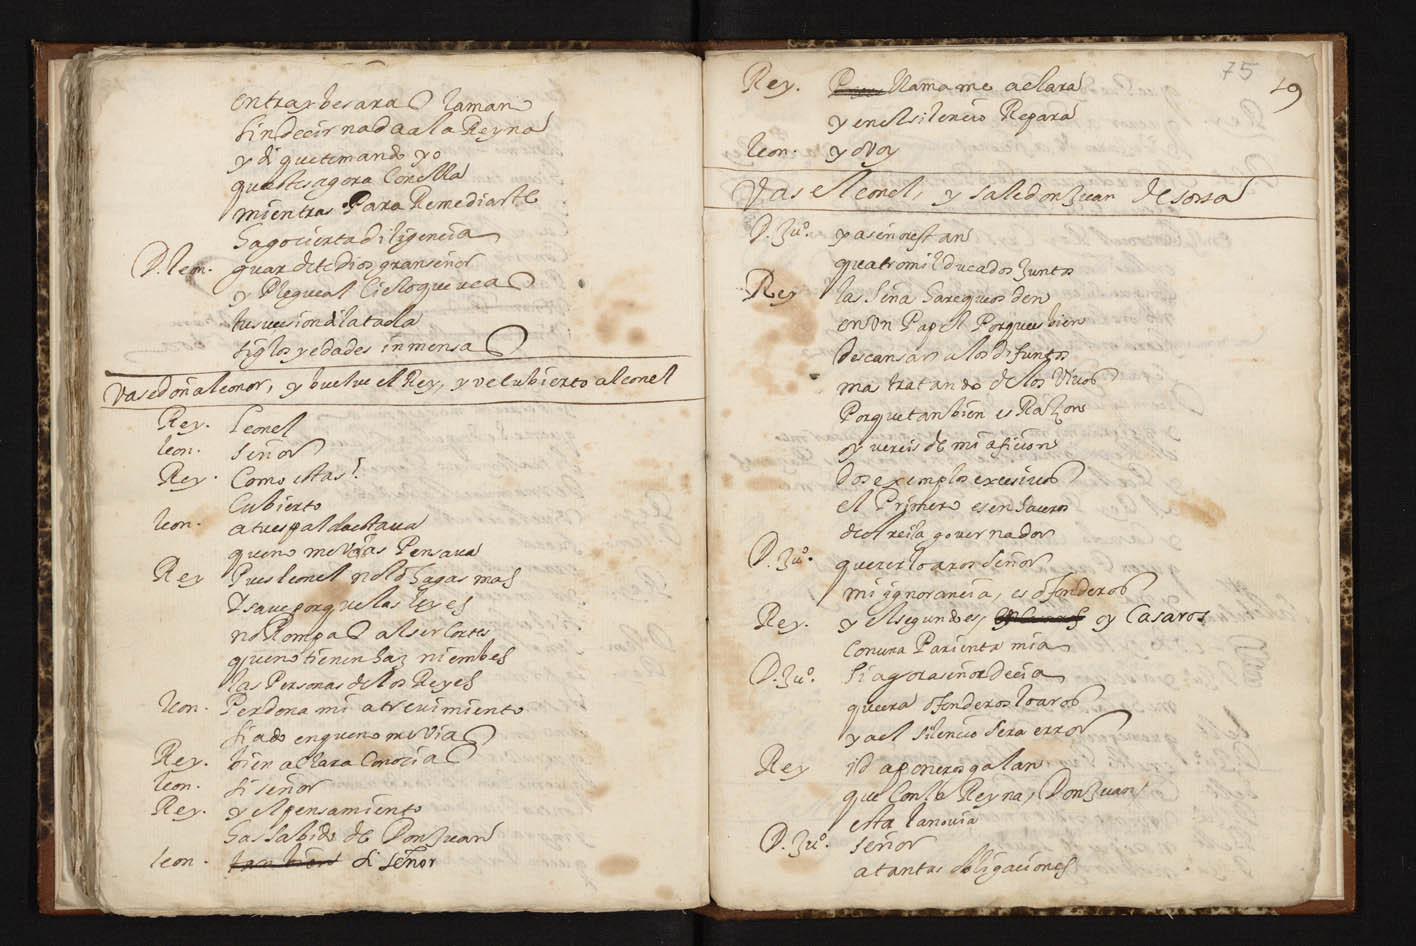 entra y besara la mano
sin decir nada a la Reyna
y di que te mando yo
que estes agora con ella
mientras Para Remediarte
hago cierta diligencia
D. leon. guardete dios gran señor
y Plegue al cielo que vea
tu suçesion dilatada
siglos y edades inmensa
Vase doña leonor, y buelue el Rey, y ve cubierto a leonel
Rey. leonel
leon. señor
Rey. Como estas?
Cubierto
leon. a tu espalda estaua
que no me vias Pensaua
Rey Pues leonel no lo hagas mas
y saue porque las leyes
no Rompa al ser cortes
que no tienen haz ni embes
las Personas de los Reyes
leon. Perdona mi atreuimiento
fiado en que no me via
Rey. bien a clara conocia
leon. si señor
Rey. y el pensamiento
has sabido de Don Juan
leon. tan bien si señor
75
49
Rey. llamame a clara
y en el silencio Repara
leon. ya voy
Vase leonel, y sale don Juan de sosa
D. Juº. ya señor estan
quatro mil ducados juntos
Rey la seña hare que os den
en vn Papel Porque es bien
descansar a los difuntos
ma tratando de los viuos
Porque tan bien es Razon
oy vereis de mi aficion
dos exemplos excesiuos
el Primero es en haceros
de seuila gouernador
D. Juº. querer loaros señor
mi ignorancia, es ofenderos
Rey. y el segundo es, oy Casaros
con vna Parienta mia
D. Juº. si agora señor decia
que era ofenderos loaros
ya el silencio sera error
Rey id a poneros galan
que con la Reyna, Don Juan
esta la nouia
D. Juº. señor
a tantas obligaciones